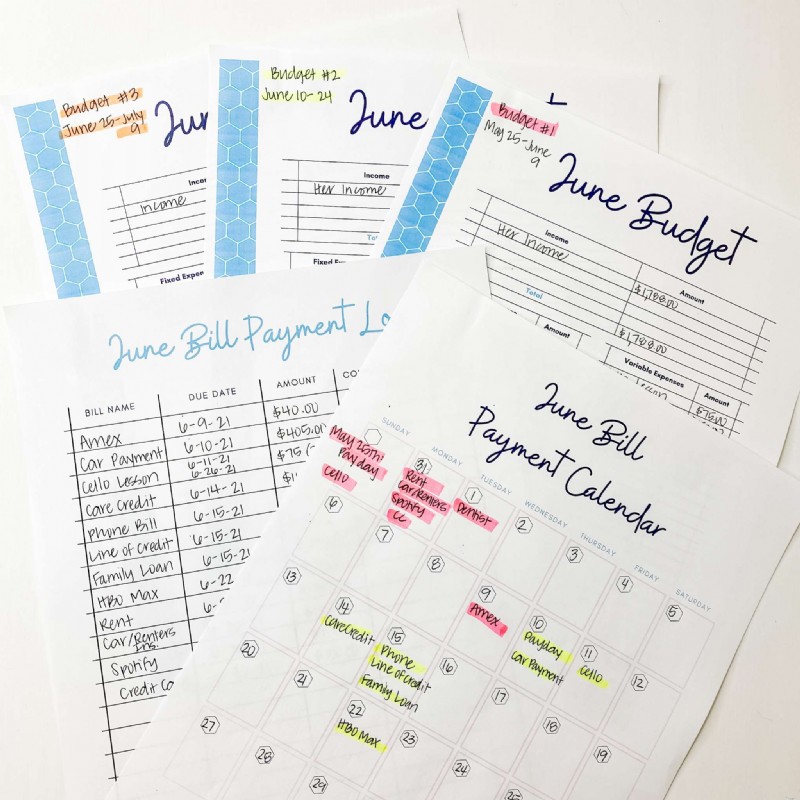 Budget #3
June 25-July
9
Jun
Incom
Income
Fixed Expen
Budget #2
June 10-24
June
Income
Her Income
Fixed
Budget #1
May 25-June
9
June Budget
Income
Amount
Her Income
$1,788.00
Total
$1,788.00
Amount
Variable Expenses
Amount
$75.00
June Bill Payment Lo
BILL NAME DUE DATE AMOUNT CO
Amex 6-9-21 $40.00
Car Payment 6-10-21 $405.0
Cello Lesson 6-11-21 $75
6-26-21
Care Credit 6-14-21
Phone Bill 6-15-21
Line of Credit 6-15-21
Family Loan 6-15-21
HBO Max 6-22
Rent
Car/Renters
Ins.
Spotify
Credit Ca
June Bill
Payment Calendar
SUNDAY MONDAY TUESDAY WEDNESDAY THURSDAY FRIDAY SATURDAY
May 25th!
Payday
Cello
31
Rent
Car/Renters
Spotify
CC
1
Dentist
2
3
4
5
6
7
8
9
Amex
10
Payday
Car Payment
11
Cello
12
13
14
CareCredit
15
Phone
Line of Credit
Family Loan
16
17
18
19
20
21
22
HBO Max
23
24
25
27
28
29